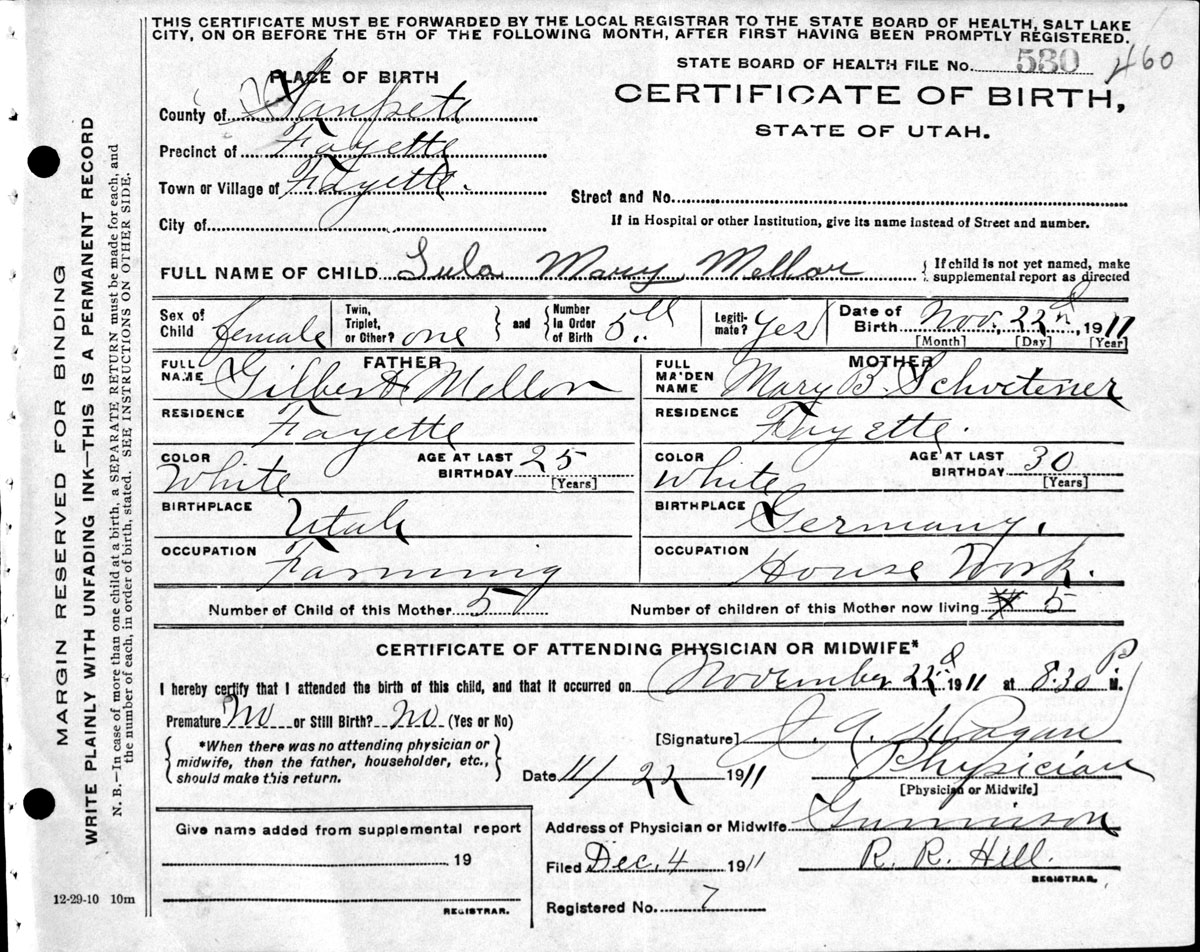 THIS CERTIFICATE MUST BE FORWARDED BY THE LOCAL REGISTRAR TO THE STATE BOARD OF HEALTH, SALT LAKE
CITY, ON OR BEFORE THE 5TH OF THE FOLLOWING MONTH, AFTER FIRST HAVING BEEN PROMPTLY REGISTERED.
STATE BOARD OF HEALTH FILE No. 530 460
CERTIFICATE OF BIRTH,
STATE OF UTAH.
PLACE OF BIRTH
County of Sanpete
Precinct of Fayette
Town or Village of Fayette.
Street and No.
City of
If in Hospital or other Institution, give its name instead of Street and number.
FULL NAME OF CHILD Lula Mary Mellor { If child is not yet named, make
supplemental report as directed
Sex of Child female Twin, Triplet, or Other? one and Number in Order of Birth 5th Legiti-mate? Yes Date of Birth Nov. 22nd, 1911
[Month] [Day] [Year]
FATHER MOTHER
FULL NAME Gilbert Mellor FULL MAIDEN NAME Mary B.
RESIDENCE Fayette RESIDENCE Fayette.
COLOR White AGE AT LAST BIRTHDAY 25 [Years] COLOR White AGE AT LAST BIRTHDAY 30 [Years]
BIRTHPLACE Utah BIRTHPLACE Germany.
OCCUPATION Farming OCCUPATION House Work.
Number of Child of this Mother 5 Number of children of this Mother now living 5
CERTIFICATE OF ATTENDING PHYSICIAN OR MIDWIFE*
I hereby certify that I attended the birth of this child, and that it occurred on November 22d 1911 at 8:30 P. M.
Premature No or Still Birth? No (Yes or No)
*When there was no attending physician or
midwife, then the father, householder, etc.,
should make this return.
[Signature] J. A. Hagan
Date 11/22 1911 Physician
[Physician or Midwife]
Give name added from supplemental report
19
REGISTRAR.
Address of Physician or Midwife Gunnison
Filed Dec. 4 1911 R. R. Hill.
REGISTRAR.
Registered No. 7
12-29-10 10m
MARGIN RESERVED FOR BINDING
WRITE PLAINLY WITH UNFADING INK—THIS IS A PERMANENT RECORD
N. B.—In case of more than one child at a birth, a SEPARATE RETURN must be made for each, and
the number of each, in order of birth, stated. SEE INSTRUCTIONS ON OTHER SIDE.